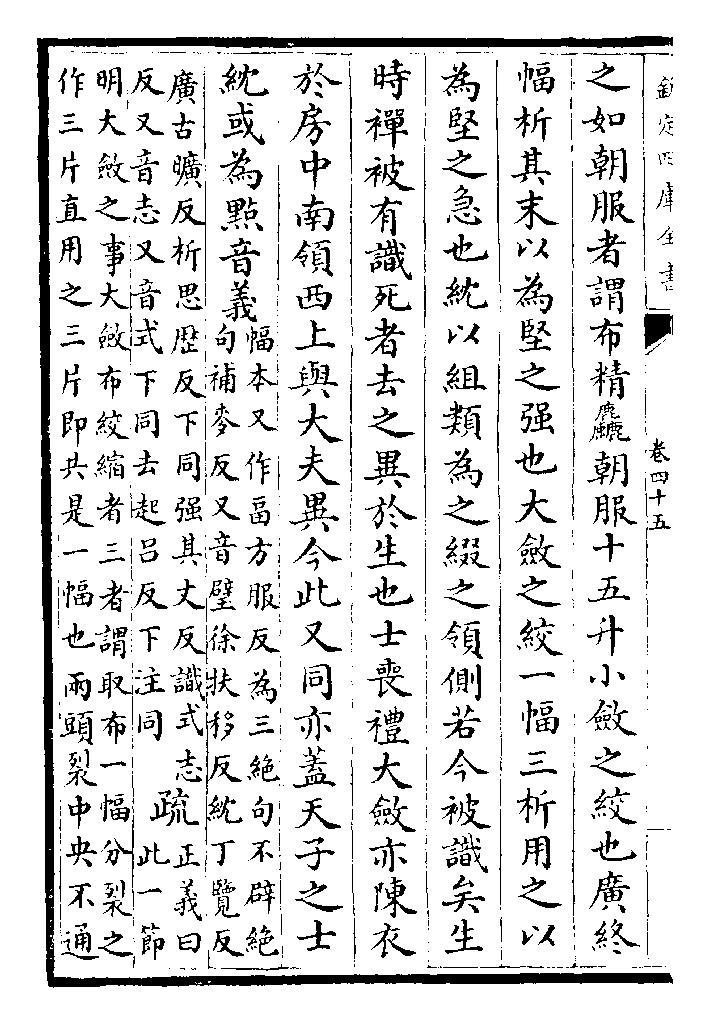 欽定四庫全書
卷四十五
之如朝服者謂布精麤朝服十五升小斂之絞也廣終
幅析其末以為堅之强也大斂之絞一幅三析用之以
為堅之急也紞以組類為之綴之領側若今被識矣生
時襌被有識死者去之異於生也士喪禮大斂亦陳衣
於房中南領西上與大夫異今此又同亦蓋天子之士
紞或為點音義
幅本又作畐方服反為三絶句不辟絶
句補麥反又音璧徐扶移反紞丁覽反
廣古曠反析思歴反下同强其丈反識式志
反又音志又音式下同去起呂反下注同
疏
正義曰
此一節
明大斂之事大斂布絞縮者三者謂取布一幅分裂之
作三片直用之三片即共是一幅也兩頭裂中央不通